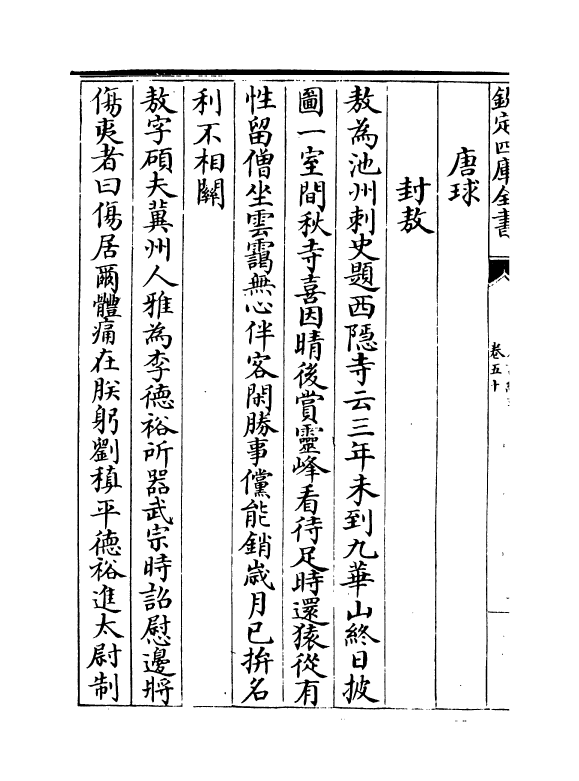 欽定四庫全書
卷五十
唐球
封敖
敖為池州刺史題西隱寺云三年未到九華山終日披
圖一室間秋寺喜因晴後賞靈峰看待足時還猿從有
性留僧坐雲靄無心伴客閑勝事儻能銷嵗月已拚名
利不相關
敖字碩夫冀州人雅為李德裕所器武宗時詔慰邊將
傷夷者曰傷居爾體痛在朕躬劉稹平德裕進太尉制